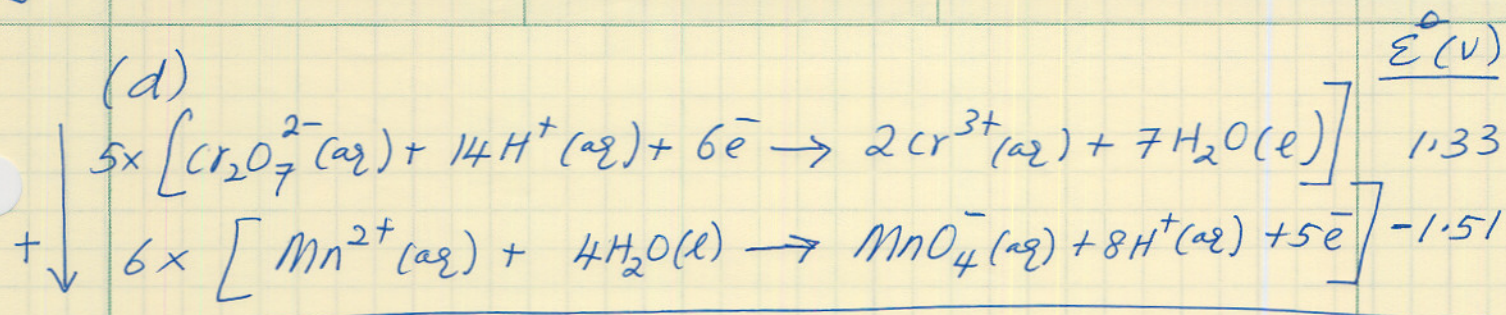 ε°(V)
(d)
5x [Cr₂O₇²⁻(aq) + 14H⁺(aq) + 6e⁻ → 2Cr³⁺(aq) + 7H₂O(l)] 1.33
+ 6x [Mn²⁺(aq) + 4H₂O(l) → MnO₄⁻(aq) + 8H⁺(aq) + 5e⁻] -1.51